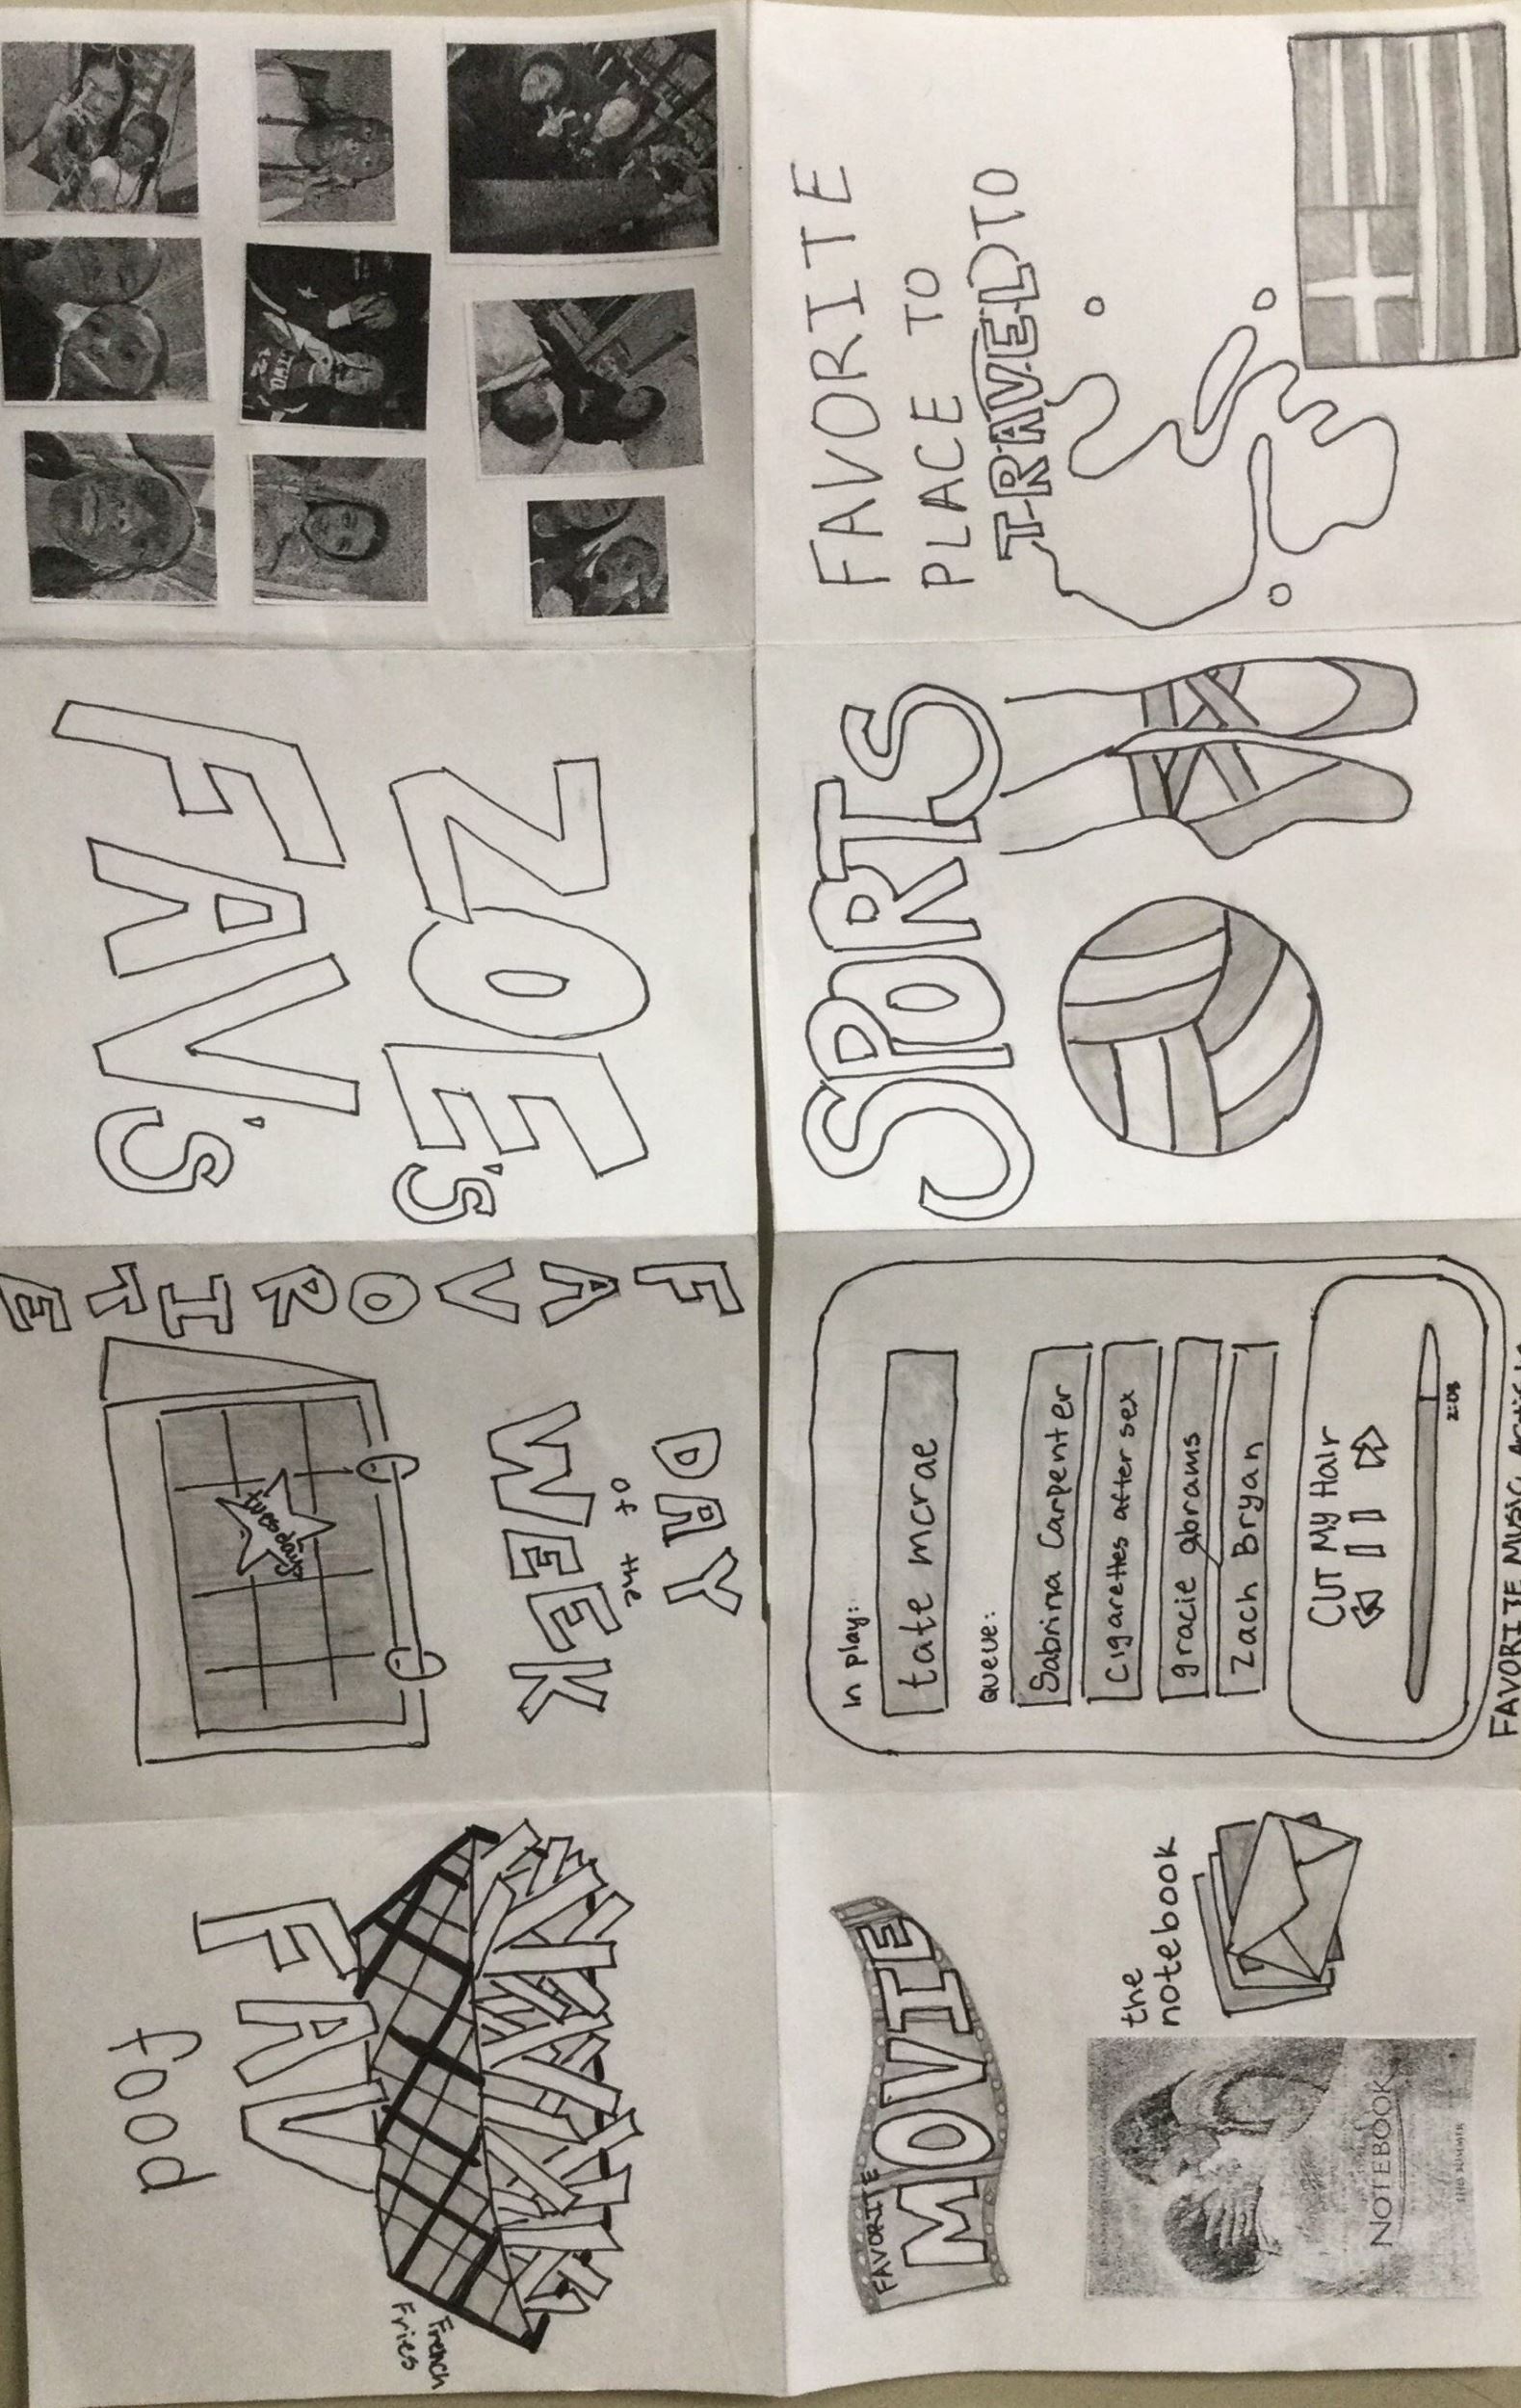 ZOE's
FAV's
FAVORITE
DAY
of the
WEEK
tuesdays
food
FAV
French
Fries
FAVORITE
MOVIE
the
notebook
NOTEBOOK
In play:
tate mcrae
Queue:
Sabrina Carpenter
Cigarettes after sex
gracie abrams
Zach Bryan
CUT My Hair
2:03
FAVORITE MUSIC
SPORTS
FAVORITE
PLACE TO
TRAVEL TO